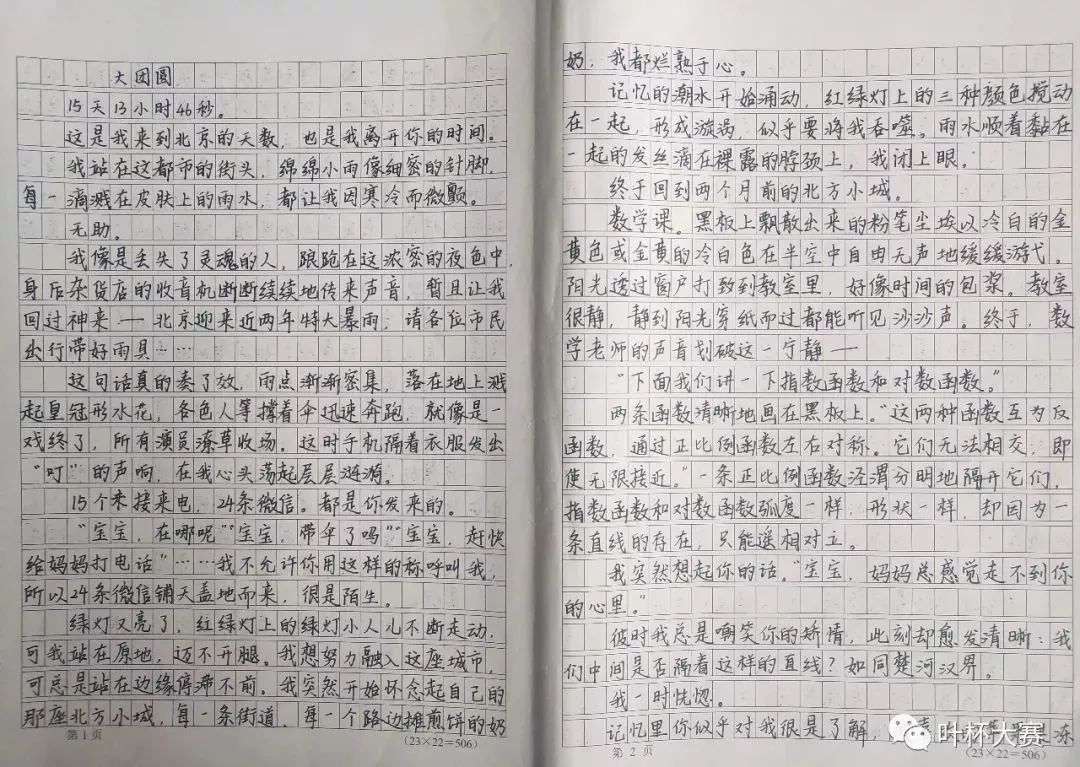 大团圆
15天13小时46秒。
这是我来到北京的天数，也是我离开你的时间。
我站在这都市的街头，绵绵小雨像细密的针脚，
每一滴溅在皮肤上的雨水，都让我因寒冷而微颤。
无助。
我像是丢失了灵魂的人，踉跄在这浓密的夜色中，
身后杂货店的收音机断断续续地传来声音，暂且让我
回过神来——北京迎来近两年特大暴雨，请各位市民
出行带好雨具……
这句话真的奏了效，雨点渐渐密集，落在地上溅
起皇冠形水花，各色人等撑着伞迅速奔跑，就像是一
戏终了，所有演员潦草收场。这时手机隔着衣服发出
“叮”的声响，在我心头荡起层层涟漪。
15个未接来电，24条微信。都是你发来的。
“宝宝，在哪呢”“宝宝，带伞了吗”“宝宝，赶快
给妈妈打电话”……我不允许你用这样的称呼叫我，
所以24条微信铺天盖地而来，很是陌生。
绿灯又亮了，红绿灯上的绿灯小人儿不断走动，
可我站在原地，迈不开腿。我想努力融入这座城市，
可总是站在边缘停滞不前。我突然开始怀念起自己的
那座北方小城，每一条街道，每一个路边摊煎饼的奶
第1页
（23×22=506）
奶，我都烂熟于心。
记忆的潮水开始涌动，红绿灯上的三种颜色搅动
在一起，形成漩涡，似乎要将我吞噬。雨水顺着黏在
一起的发丝滴在裸露的脖颈上，我闭上眼。
终于回到两个月前的北方小城。
数学课。黑板上飘散出来的粉笔尘埃以冷白的金
黄色或金黄的冷白色在半空中自由无声地缓缓游弋。
阳光透过窗户打致到教室里，好像时间的包浆。教室
很静，静到阳光穿纸而过都能听见沙沙声。终于，数
学老师的声音划破这一宁静——
“下面我们讲一下指数函数和对数函数。”
两条函数清晰地画在黑板上。“这两种函数互为反
函数，通过正比例函数左右对称。它们无法相交，即
使无限接近。”一条正比例函数泾渭分明地隔开它们，
指数函数和对数函数弧度一样，形状一样，却因为一
条直线的存在，只能遥相对立。
我突然想起你的话。“宝宝，妈妈总感觉走不到你
的心里。”
彼时我总是嘲笑你的矫情，此刻却愈发清晰：我
们中间是否隔着这样的直线？如同楚河汉界。
我一时恍惚。
记忆里你似乎对我很是了解，
冻
第2页
（23×22=506）
叶杯大赛